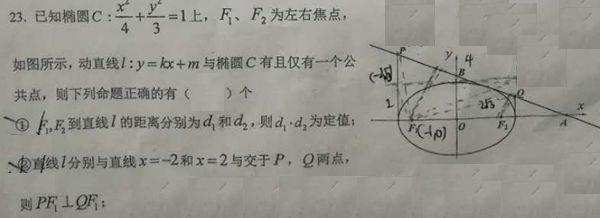 23. 已知椭圆 C : x²/4 + y²/3 = 1 上，F₁、F₂ 为左右焦点，
如图所示，动直线 l : y = kx + m 与椭圆 C 有且仅有一个公
共点，则下列命题正确的有（　　）个
① F₁, F₂ 到直线 l 的距离分别为 d₁ 和 d₂，则 d₁ · d₂ 为定值；
②直线 l 分别与直线 x = −2 和 x = 2 与交于 P，Q 两点，
则 PF₁ ⊥ QF₁；
P
y
4
B
Q
2
2√3
x
F₁
(-1,0)
O
F₂
A